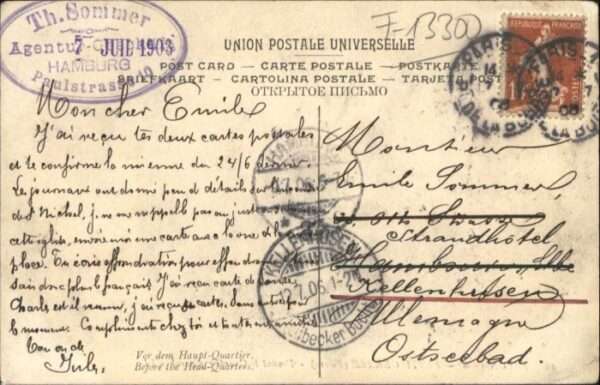 Th. Sommer
Agentur
7 JUL 1903
HAMBURG
Paulstrasse
F-13300
UNION POSTALE UNIVERSELLE
POST CARD — CARTE POSTALE — POSTKARTE
BRIEFKAART — CARTOLINA POSTALE — TARJETA POST
ОТКРЫТОЕ ПИСЬМО
RÉPUBLIQUE FRANÇAISE
PARIS
DE LA BOURSE
Mon cher Emile
J'ai reçu tes deux cartes postales
et te confirme la mienne du 24/6 dernier.
Les journaux ont donné peu de détails sur
de St Michel, je ne me rappelle pas au juste
cette église, envoie moi une carte avec la vue de la
place. Tu écris
sais donc plus le français. J'ai reçu carte de
Charles est il revenu, j'ai reçu cartes. Sans autre pour
le moment. Compliments chez toi et toutes mes amitiés
Ton
Jules
Monsieur
Emile Sommer,
Strandhôtel
Hambourg
Kellenhusen
Allemagne
Ostseebad.
KELLENHUSEN
7.06.1-2
Vor dem Haupt-Quartier.
Before the Head-Quarters.